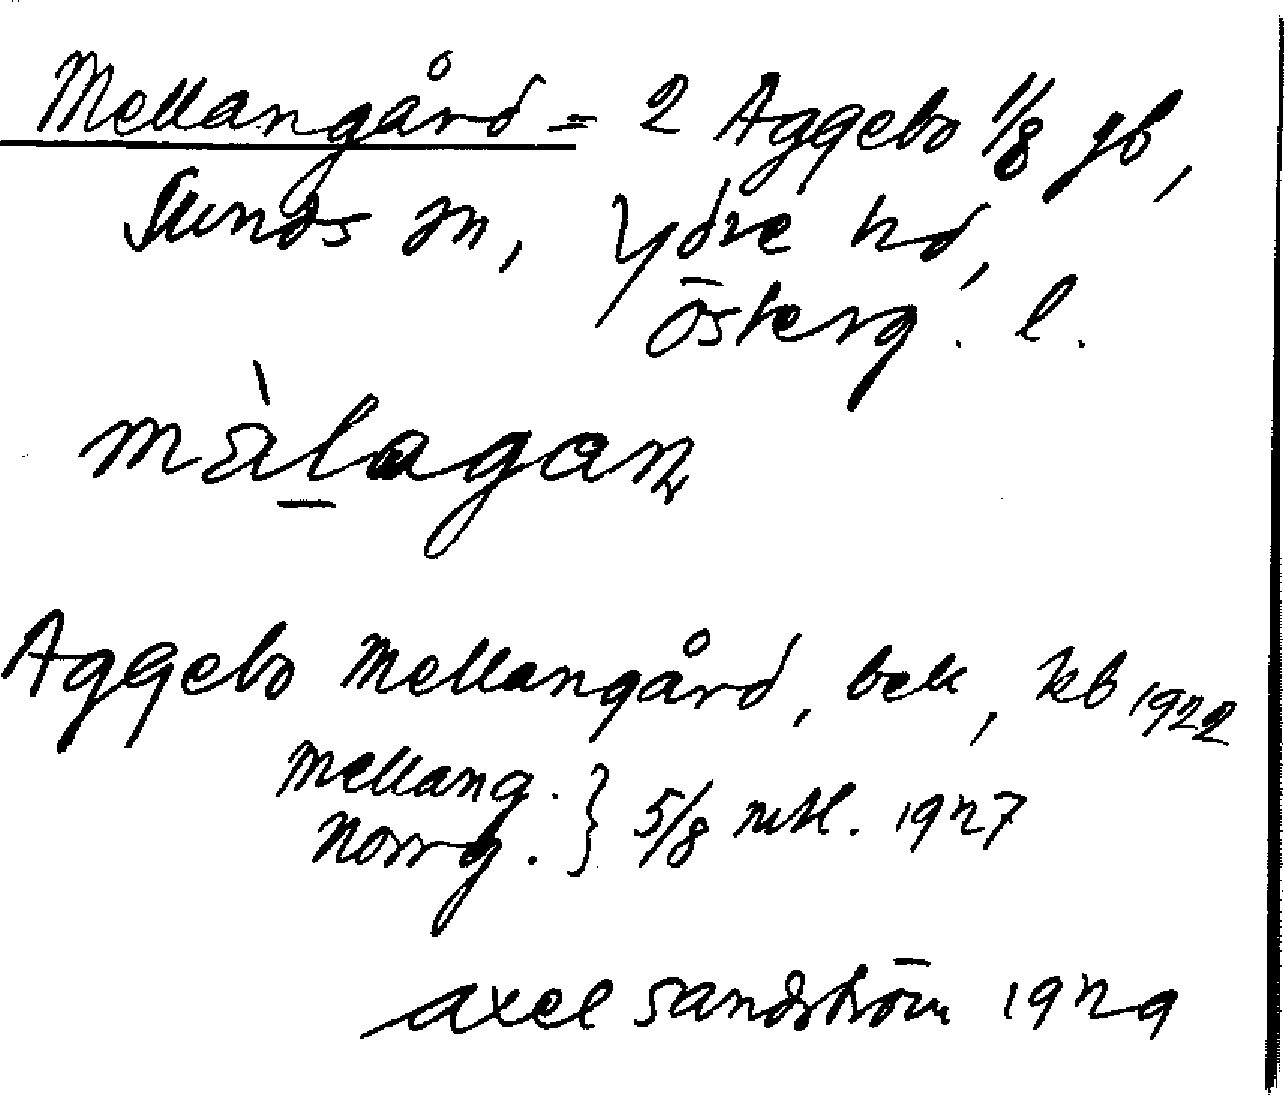 Mellangård = 2 Aggebo 1/8 gb,
Sunds sn, Ydre hd,
Österg. l.
màlagan
Aggebo Mellangård, bell, kb 1922
Mellang. } 5/8 mtl. 1927
Norrg.
Axel Sandström 1929